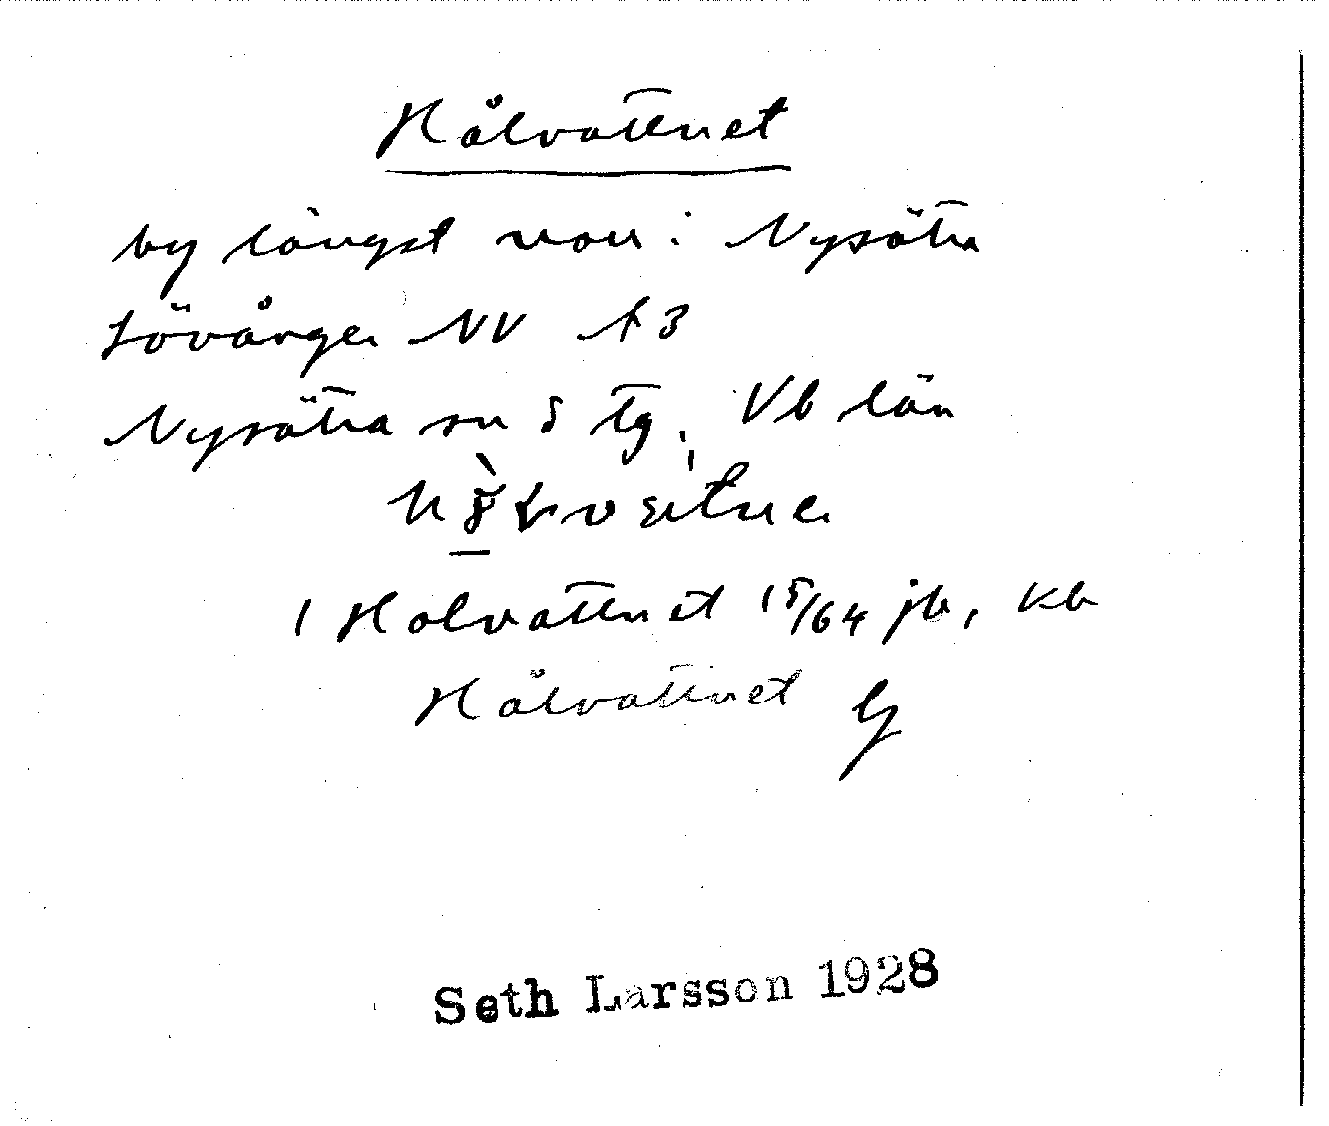 Hålvattnet
by längst norr i Nysätra
Lövånger NV A3
Nysätra sn S tg. Vb län
1 Holvattnet 15/64 jb, kb
Hålvattnet G
Seth Larsson 1928